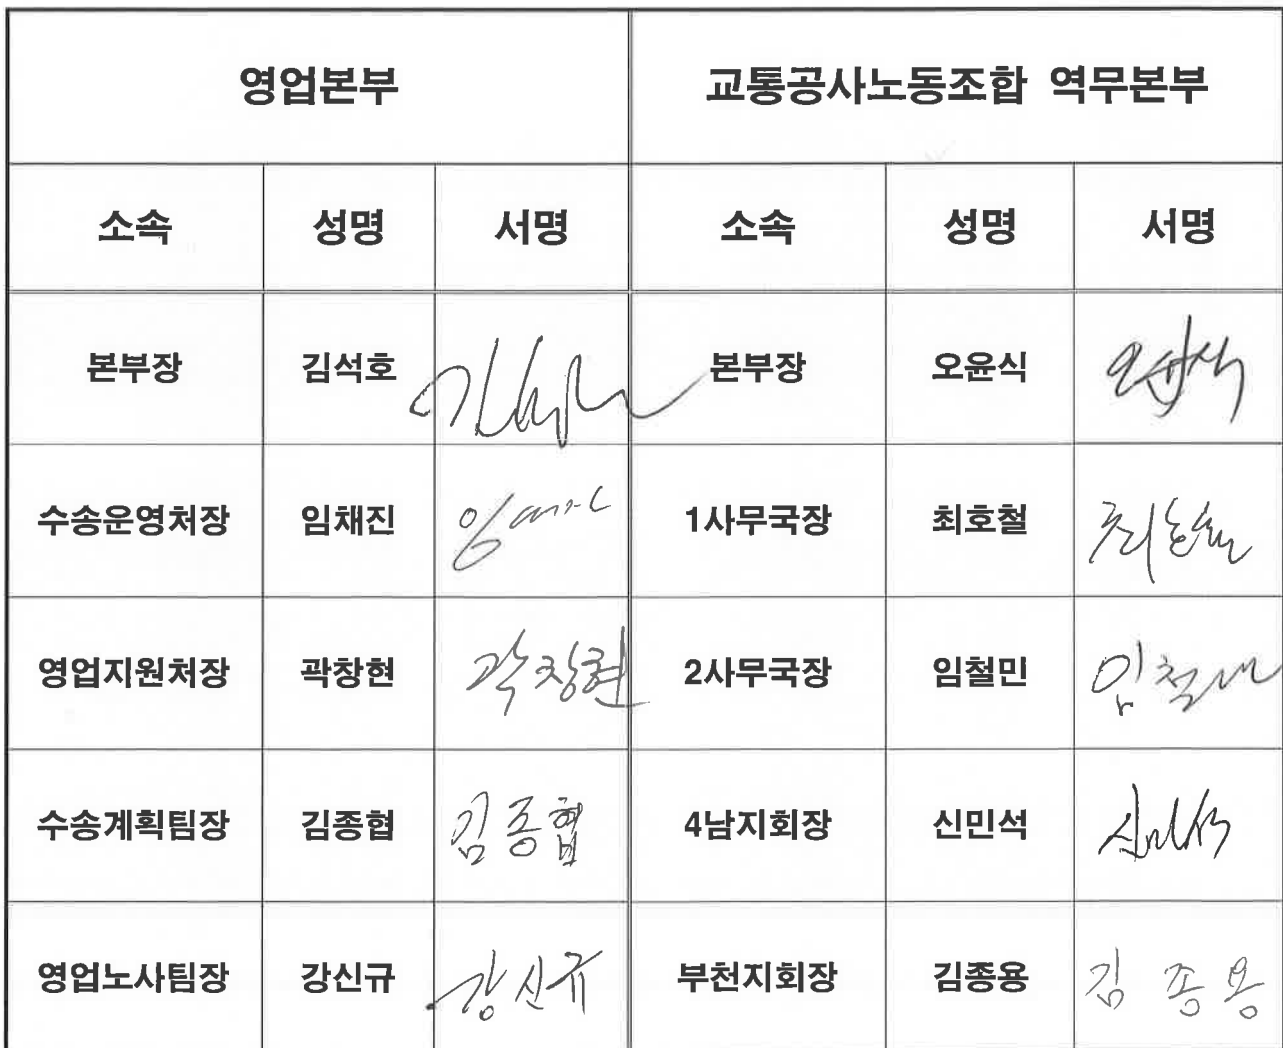 영업본부 교통공사노동조합 역무본부
소속 성명 서명 소속 성명 서명
본부장 김석호 본부장 오윤식 오윤식
수송운영처장 임채진 1사무국장 최호철 최호철
영업지원처장 곽창현 곽창현 2사무국장 임철민 임철민
수송계획팀장 김종협 김종협 4남지회장 신민석 신민석
영업노사팀장 강신규 강신규 부천지회장 김종용 김종용